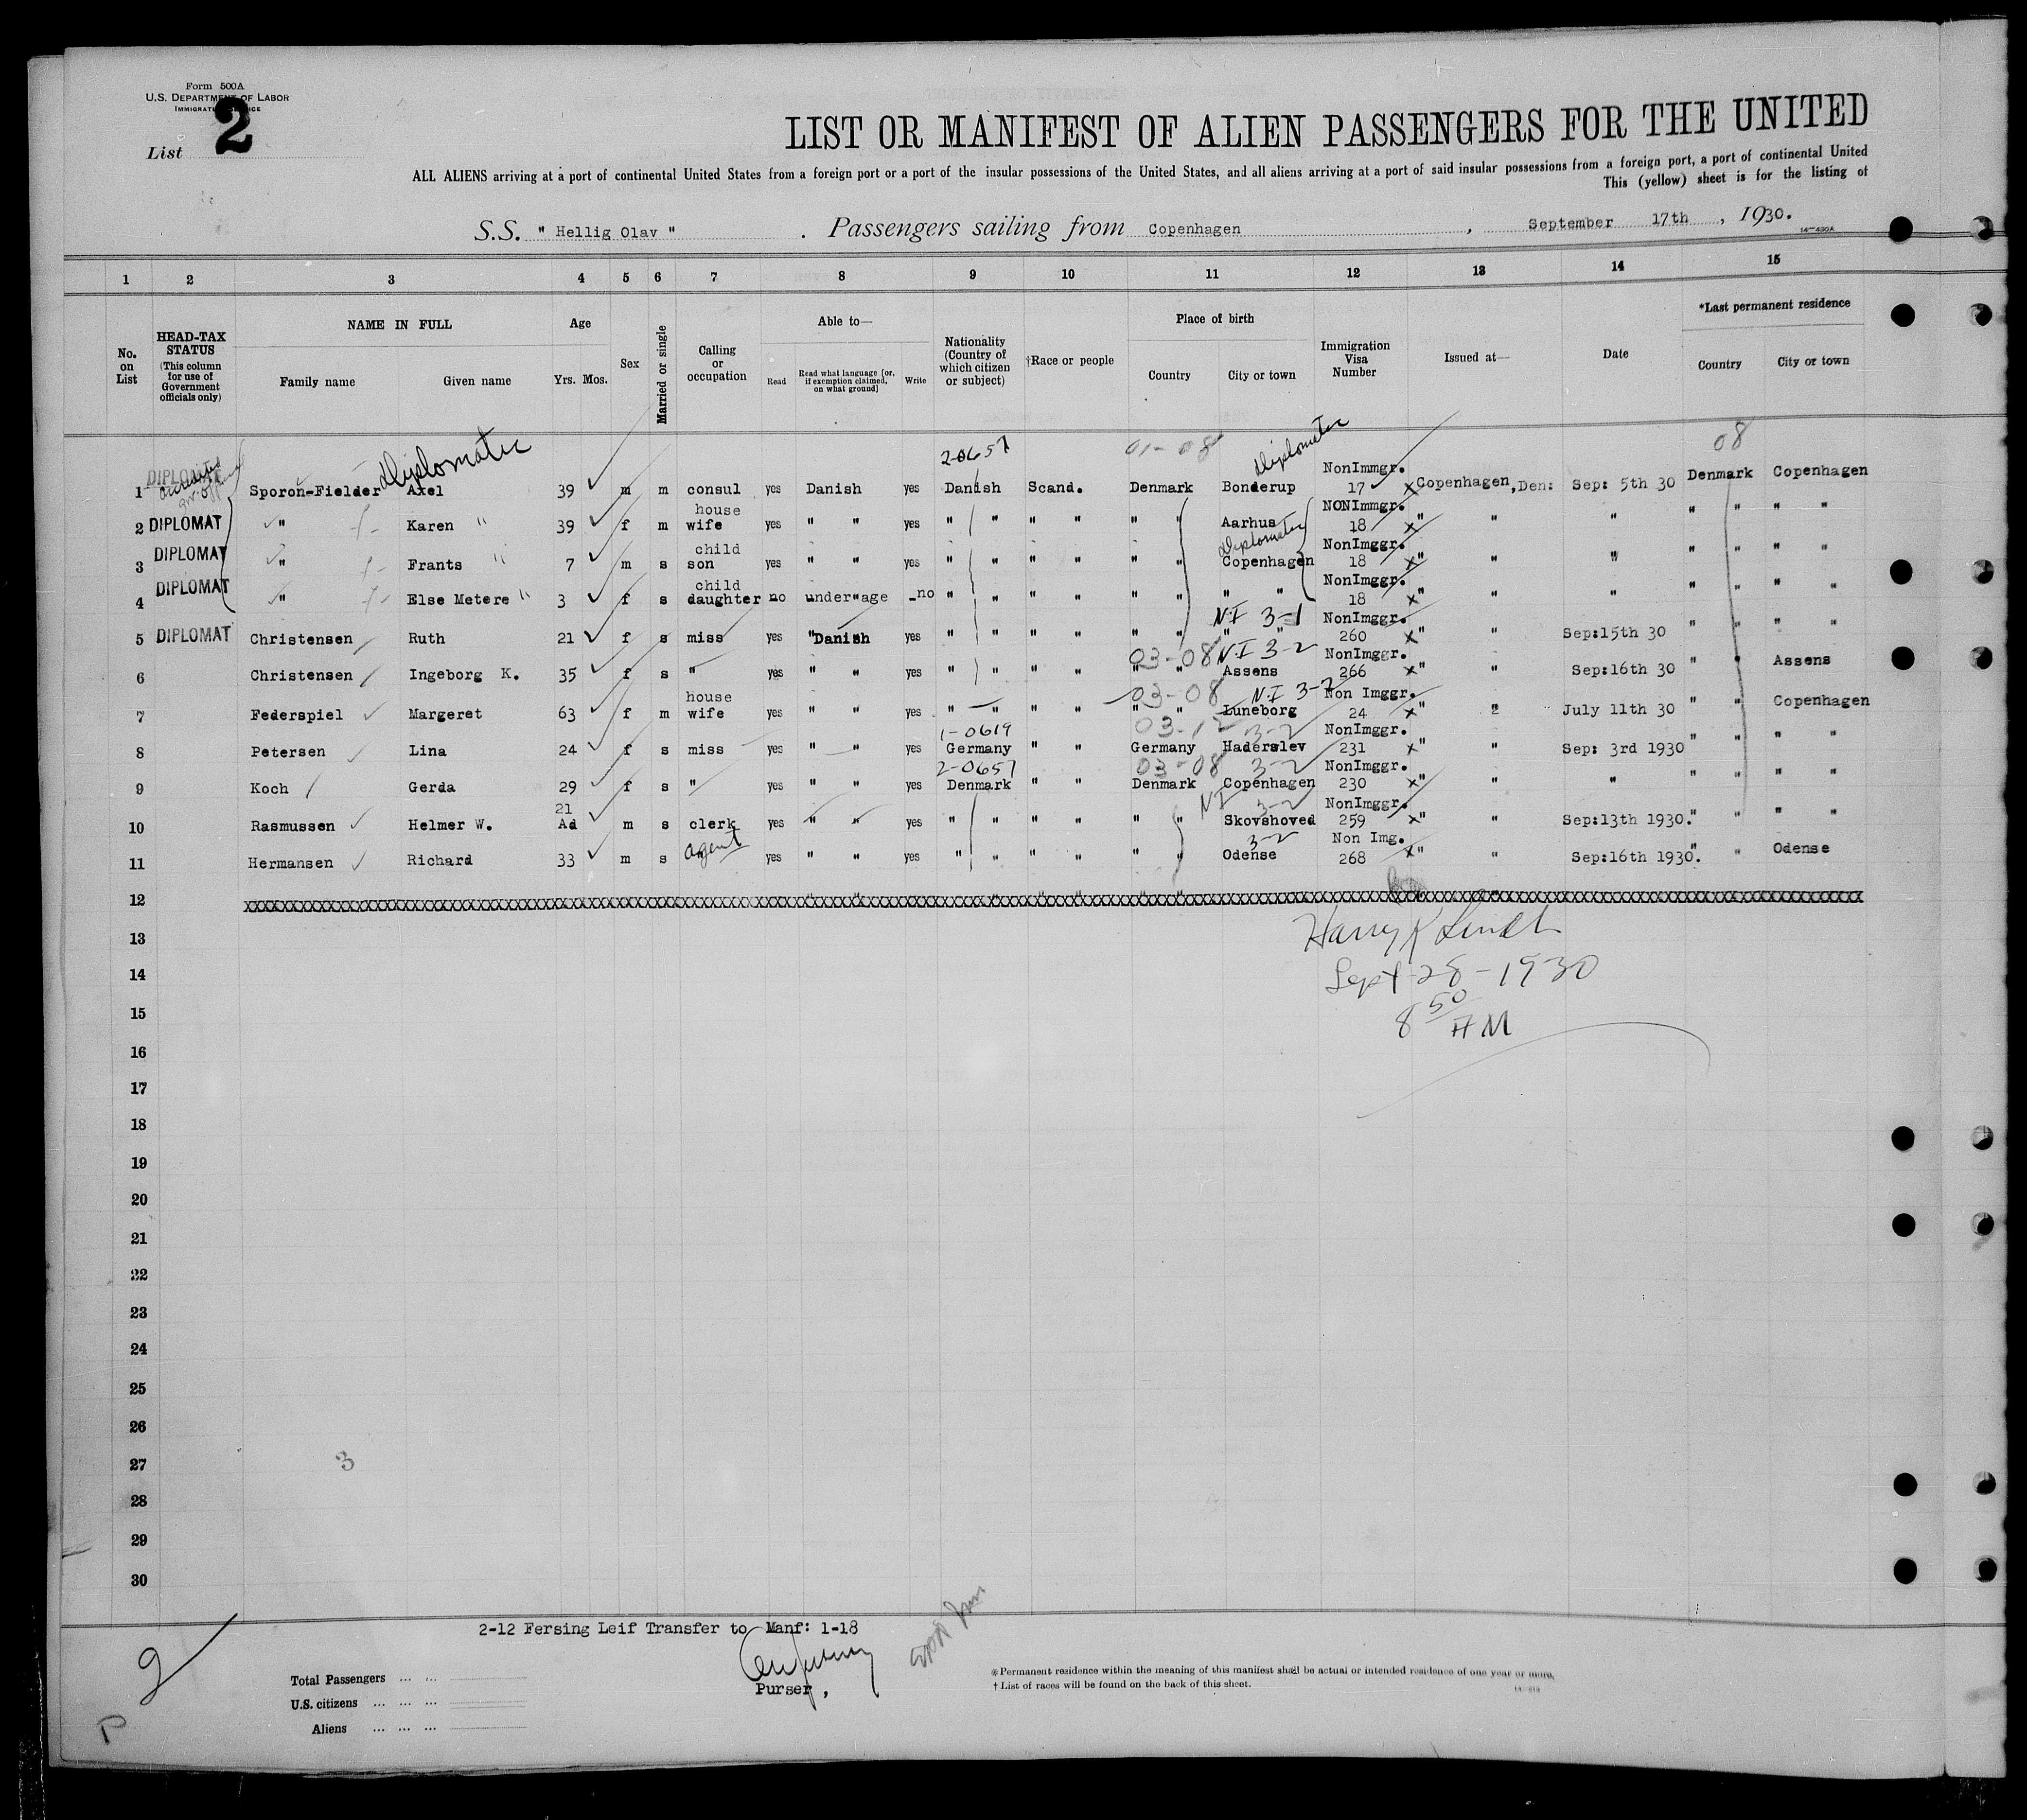 Form 500A
U.S. DEPARTMENT OF LABOR
IMMIGRATION SERVICE
List 2
LIST OR MANIFEST OF ALIEN PASSENGERS FOR THE UNITED
ALL ALIENS arriving at a port of continental United States from a foreign port or a port of the insular possessions of the United States, and all aliens arriving at a port of said insular possessions from a foreign port, a port of continental United
This (yellow) sheet is for the listing of
S.S. " Hellig Olav " . Passengers sailing from Copenhagen , September 17th , 1930.
1 2 3 4 5 6 7 8 9 10 11 12 13 14 15
No. on List
HEAD-TAX STATUS (This column for use of Government officials only)
NAME IN FULL
Family name Given name
Age
Yrs. Mos.
Sex
Married or single
Calling or occupation
Able to—
Read Read what language [or, if exemption claimed, on what ground] Write
Nationality (Country of which citizen or subject)
†Race or people
Place of birth
Country City or town
Immigration Visa Number
Issued at—
Date
*Last permanent residence
Country City or town
Diplomatic 2-0657 01-08 Diplomatic 08
DIPLOMAT NonImmgr.
1 Sporon-Fielder Axel 39 m m consul yes Danish yes Danish Scand. Denmark Bonderup 17 x Copenhagen, Den: Sep: 5th 30 Denmark Copenhagen
house NONImmgr.
2 DIPLOMAT " Karen " 39 f m wife yes " " yes " " " " " " Aarhus 18 x" " " " " " "
child Diplomatic NonImggr.
3 DIPLOMAT " Frants " 7 m s son yes " " yes " " " " " " Copenhagen 18 x" " " " " " "
child NonImggr.
4 DIPLOMAT " Else Metere " 3 f s daughter no under"age -no " " " " " " " " 18 x" " " " " " "
N.I 3-1 NonImggr.
5 DIPLOMAT Christensen Ruth 21 f s miss yes "Danish yes " " " " " " " " 260 x" " Sep:15th 30 " " " "
03-08 N.I 3-2 NonImggr.
6 Christensen Ingeborg K. 35 f s " yes " " yes " " " " " " Assens 266 x" " Sep:16th 30 " " Assens
house 03-08 N.I 3-2 Non Imggr.
7 Federspiel Margeret 63 f m wife yes " " yes " " " " " " Luneborg 24 x" " July 11th 30 " " Copenhagen
1-0619 03-12 3-2 NonImggr.
8 Petersen Lina 24 f s miss yes " " yes Germany " " Germany Haderslev 231 x" " Sep: 3rd 1930 " " " "
2-0657 03-08 3-2 NonImggr.
9 Koch Gerda 29 f s " yes " " yes Denmark " " Denmark Copenhagen 230 x" " " " " " "
21 NI 3-2 NonImggr.
10 Rasmussen Helmer W. Ad m s clerk yes " " yes " " " " " " Skovshoved 259 x" " Sep:13th 1930. " " " "
agent 3-2 Non Img.
11 Hermansen Richard 33 m s " yes " " yes " " " " " " Odense 268 x" " Sep:16th 1930. " " Odense
12
13
14
15
16
17
18
19
20
21
22
23
24
25
26
27
28
29
30
Sept-28-1930
8 50 AM
3
2-12 Fersing Leif Transfer to Manf: 1-18
2
Purser,
Total Passengers ... ...
U.S. citizens ... ... ...
Aliens ... ... ...
P
*Permanent residence within the meaning of this manifest shall be actual or intended residence of one year or more.
†List of races will be found on the back of this sheet.